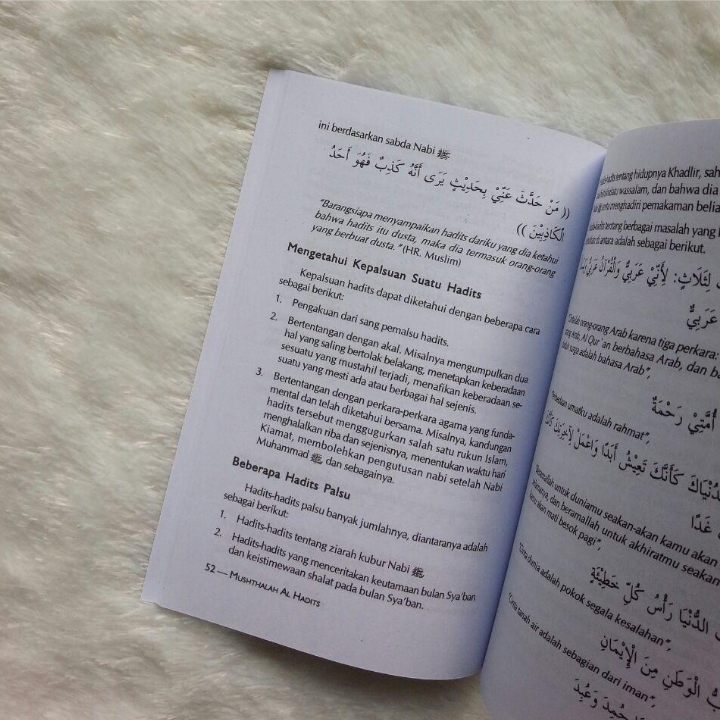 ini berdasarkan sabda Nabi ﷺ
(( مَنْ حَدَّثَ عَنِّيْ بِحَدِيْثٍ يَرَى أَنَّهُ كَذِبٌ فَهُوَ أَحَدُ
الْكَاذِبِيْنَ ))
"Barangsiapa menyampaikan hadits dariku yang dia ketahui
bahwa hadits itu dusta, maka dia termasuk orang-orang
yang berbuat dusta." (HR. Muslim)
Mengetahui Kepalsuan Suatu Hadits
Kepalsuan hadits dapat diketahui dengan beberapa cara
sebagai berikut:
1. Pengakuan dari sang pemalsu hadits.
2. Bertentangan dengan akal. Misalnya mengumpulkan dua
hal yang saling bertolak belakang, menetapkan keberadaan
sesuatu yang mustahil terjadi, menafikan keberadaan se-
suatu yang mesti ada atau berbagai hal sejenis.
3. Bertentangan dengan perkara-perkara agama yang funda-
mental dan telah diketahui bersama. Misalnya, kandungan
hadits tersebut menggugurkan salah satu rukun Islam,
menghalalkan riba dan sejenisnya, menentukan waktu hari
Kiamat, membolehkan pengutusan nabi setelah Nabi
Muhammad ﷺ dan sebagainya.
Beberapa Hadits Palsu
Hadits-hadits palsu banyak jumlahnya, diantaranya adalah
sebagai berikut:
1. Hadits-hadits tentang ziarah kubur Nabi ﷺ.
2. Hadits-hadits yang menceritakan keutamaan bulan Sya'ban
dan keistimewaan shalat pada bulan Sya'ban.
52 — MUSHTHALAH AL HADITS
tentang hidupnya Khadlir,
wassalam, dan bahwa dia
menghadiri pemakaman
tentang berbagai masalah yang
antara adalah sebagai berikut.
لِثَلَاثٍ: لِأَنِّيْ عَرَبِيٌّ وَالْقُرْآنُ عَرَبِيٌّ
عَرَبِيٌّ
orang-orang Arab karena tiga perkara:
Arab, Al Qur'an berbahasa Arab, dan
surga adalah bahasa Arab",
أُمَّتِيْ رَحْمَةٌ
umatku adalah rahmat",
كَأَنَّكَ تَعِيْشُ أَبَدًا وَاعْمَلْ لِآخِرَتِكَ
غَدًا
untuk duniamu seakan-akan kamu akan
dan beramallah untuk akhiratmu
akan mati besok pagi",
الدُّنْيَا رَأْسُ كُلِّ خَطِيْئَةٍ
dunia adalah pokok segala kesalahan",
الْوَطَنِ مِنَ الْإِيْمَانِ
tanah air adalah sebagian dari iman",